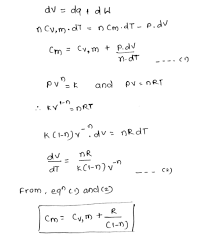 dU = dq + dW
n Cv,m · dT = n Cm · dT - P.dV
Cm = Cv,m + P.dV / n.dT --- (1)
PVⁿ = K and PV = nRT
∴ KV¹⁻ⁿ = nRT
K(1-n)V⁻ⁿ.dV = nRdT
dV/dT = nR / K(1-n)V⁻ⁿ --- (2)
From, eqⁿ (1) and (2)
Cm = Cv,m + R/(1-n)